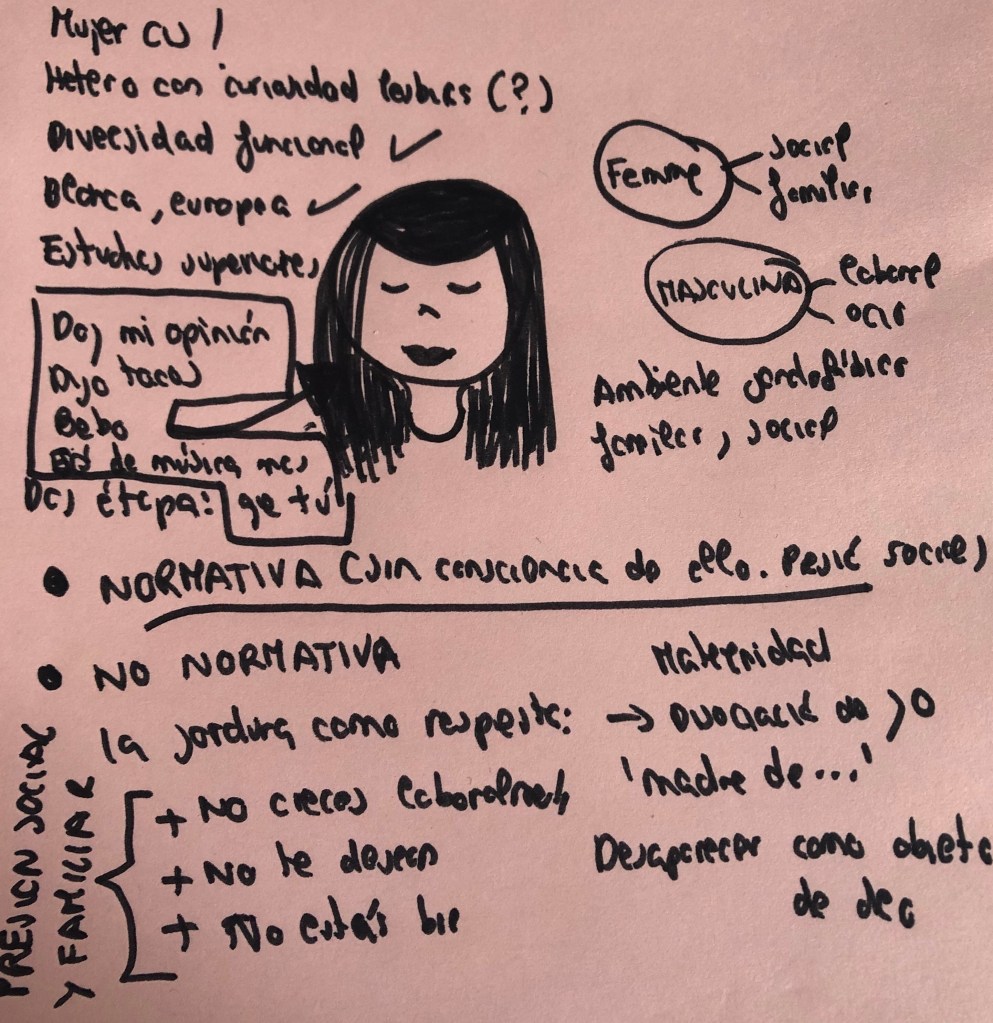 Mujer
Hetero con curiosidad (?)
Diversidad funcional ✓
Blanca, europea ✓
Estudios superiores
Doy mi opinión
Digo tacos
Bebo
de música
Doy étapa: qe tú
Femme
social
familiar
MASCULINA
laboral
ocio
Ambiente gordofóbico
familiar, social
• NORMATIVA (sin consciencia de ello. Presié social)
• NO NORMATIVA
la gordura como respeste:
+ No creces laboralment
+ No te desean
+ No estás bie
PRESIÓN SOCIAL
Y FAMILIAR
Maternidad
→ de yo
'madre de...'
Desaparecer como objeto
de